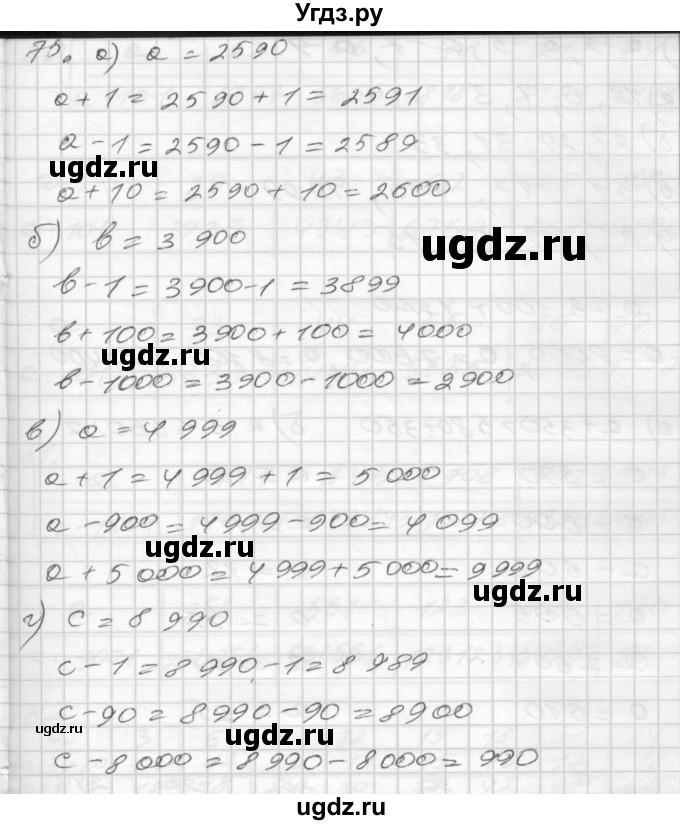 Угдз.ру
75. а) a = 2590
a + 1 = 2590 + 1 = 2591
a - 1 = 2590 - 1 = 2589
ugdz.ru
a + 10 = 2590 + 10 = 2600
б) в = 3 900
ugdz.ru
в - 1 = 3900 - 1 = 3899
в + 100 = 3900 + 100 = 4000
ugdz.ru
в - 1000 = 3900 - 1000 = 2900
в) a = 4 999
a + 1 = 4 999 + 1 = 5 000
a - 900 = 4 999 - 900 = 4 099
ugdz.ru
a + 5 000 = 4 999 + 5 000 = 9 999
ugdz.ru
г) c = 8 990
c - 1 = 8 990 - 1 = 8 989
c - 90 = 8 990 - 90 = 8900
ugdz.ru
ugdz.ru
c - 8 000 = 8 990 - 8 000 = 990
ugdz.ru